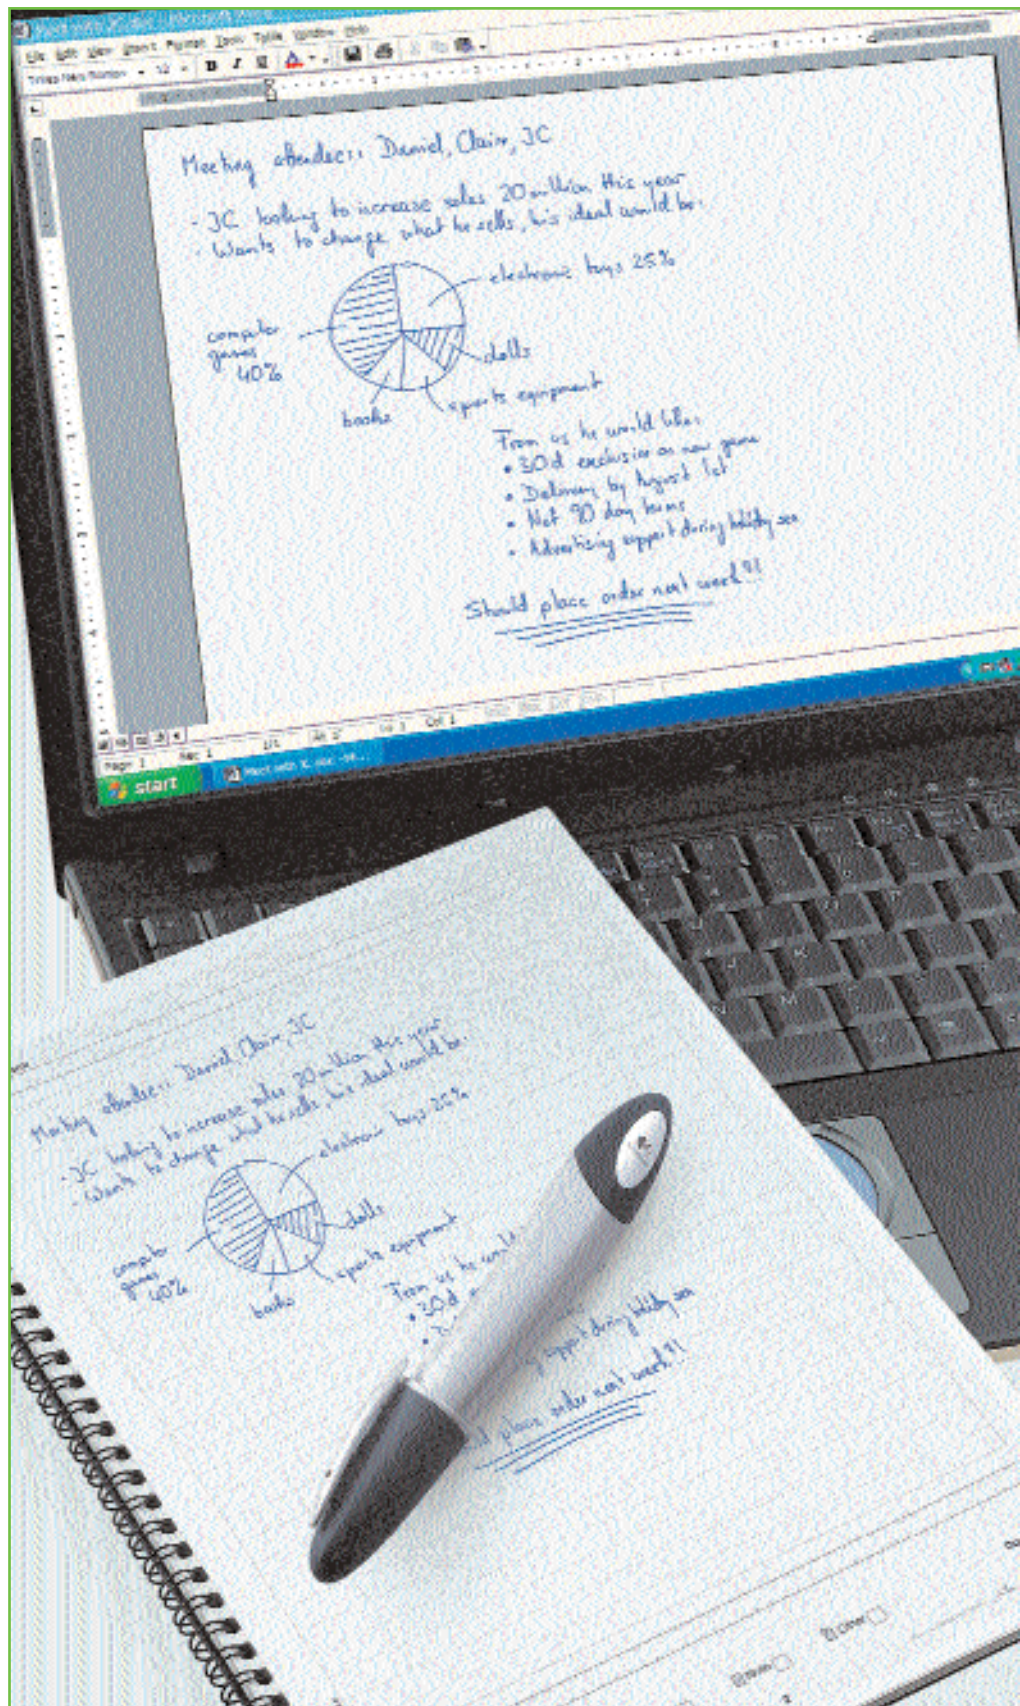 File Edit View Insert Format Tools Table Window Help
Times New Roman 12 B I U
Meeting attendees: Daniel, Claire, JC
- JC looking to increase sales 20 million this year
- Wants to change what he sells, his ideal would be:
electronic toys 25%
computer
games
40%
dolls
sports equipment
books
From us he would like:
• 30d exclusive on new game
• Delivery by August 1st
• Net 90 day terms
• Advertising support during holiday sea
Should place order next week!!!
Page 1 Sec 1 1/1 Col 1
start
Meeting attendees: Daniel, Claire, JC
- JC looking to increase sales 20 million this year
- Wants to change what he sells, his ideal would be:
electronic toys 25%
computer
games
40%
dolls
sports equipment
books
From us he would
• 30d
support during holiday sea
place order next week!!!